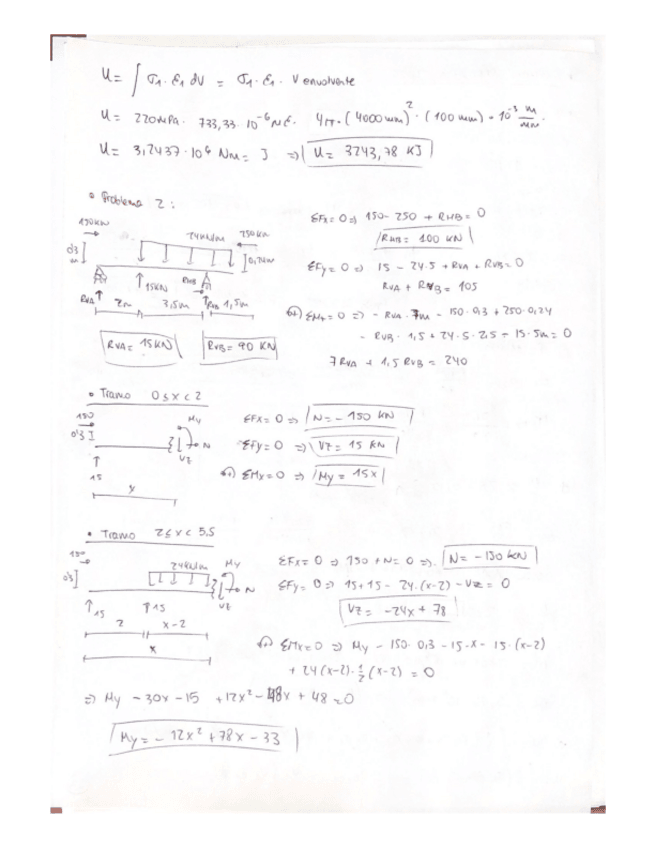 U = ∫ σ₁ · ε₁ dV = σ₁ · ε₁ · V envolvente
U = 220 MPa · 733,33 · 10⁻⁶ · 4π · (4000 mm)² · (100 mm) · 10⁻³ m/mm
U = 3,2437 · 10⁶ Nm = J ⇒ U = 3243,78 KJ
• Problema 2:
150KN 24KN/m 250KN
0,3 m 0,24m
RVA 15KN RHB RVB
2m 3,5m 1,5m
RVA = 15 KN RVB = 90 KN
ΣFx = 0 ⇒ 150 - 250 + RHB = 0
RHB = 100 KN
ΣFy = 0 ⇒ 15 - 24·5 + RVA + RVB = 0
RVA + RVB = 105
ΣM = 0 ⇒ - RVA · 7m - 150·0,3 + 250·0,24
- RVB · 1,5 + 24·5·2,5 - 15·5m = 0
7 RVA + 1,5 RVB = 240
• Tramo 0 ≤ x < 2
150 My
0'3 N
Vz
15
x
ΣFx = 0 ⇒ N = - 150 KN
ΣFy = 0 ⇒ Vz = 15 KN
ΣMx = 0 ⇒ My = 15x
• Tramo 2 ≤ x < 5,5
150 24KN/m My
0'3 N
Vz
15 15
2 x-2
x
ΣFx = 0 ⇒ 150 + N = 0 ⇒ N = -150 KN
ΣFy = 0 ⇒ 15 + 15 - 24·(x-2) - Vz = 0
Vz = -24x + 78
ΣMx = 0 ⇒ My - 150·0,3 - 15·x - 15·(x-2)
+ 24(x-2)·½(x-2) = 0
⇒ My - 30x - 15 + 12x² - 48x + 48 = 0
My = - 12x² + 78x - 33